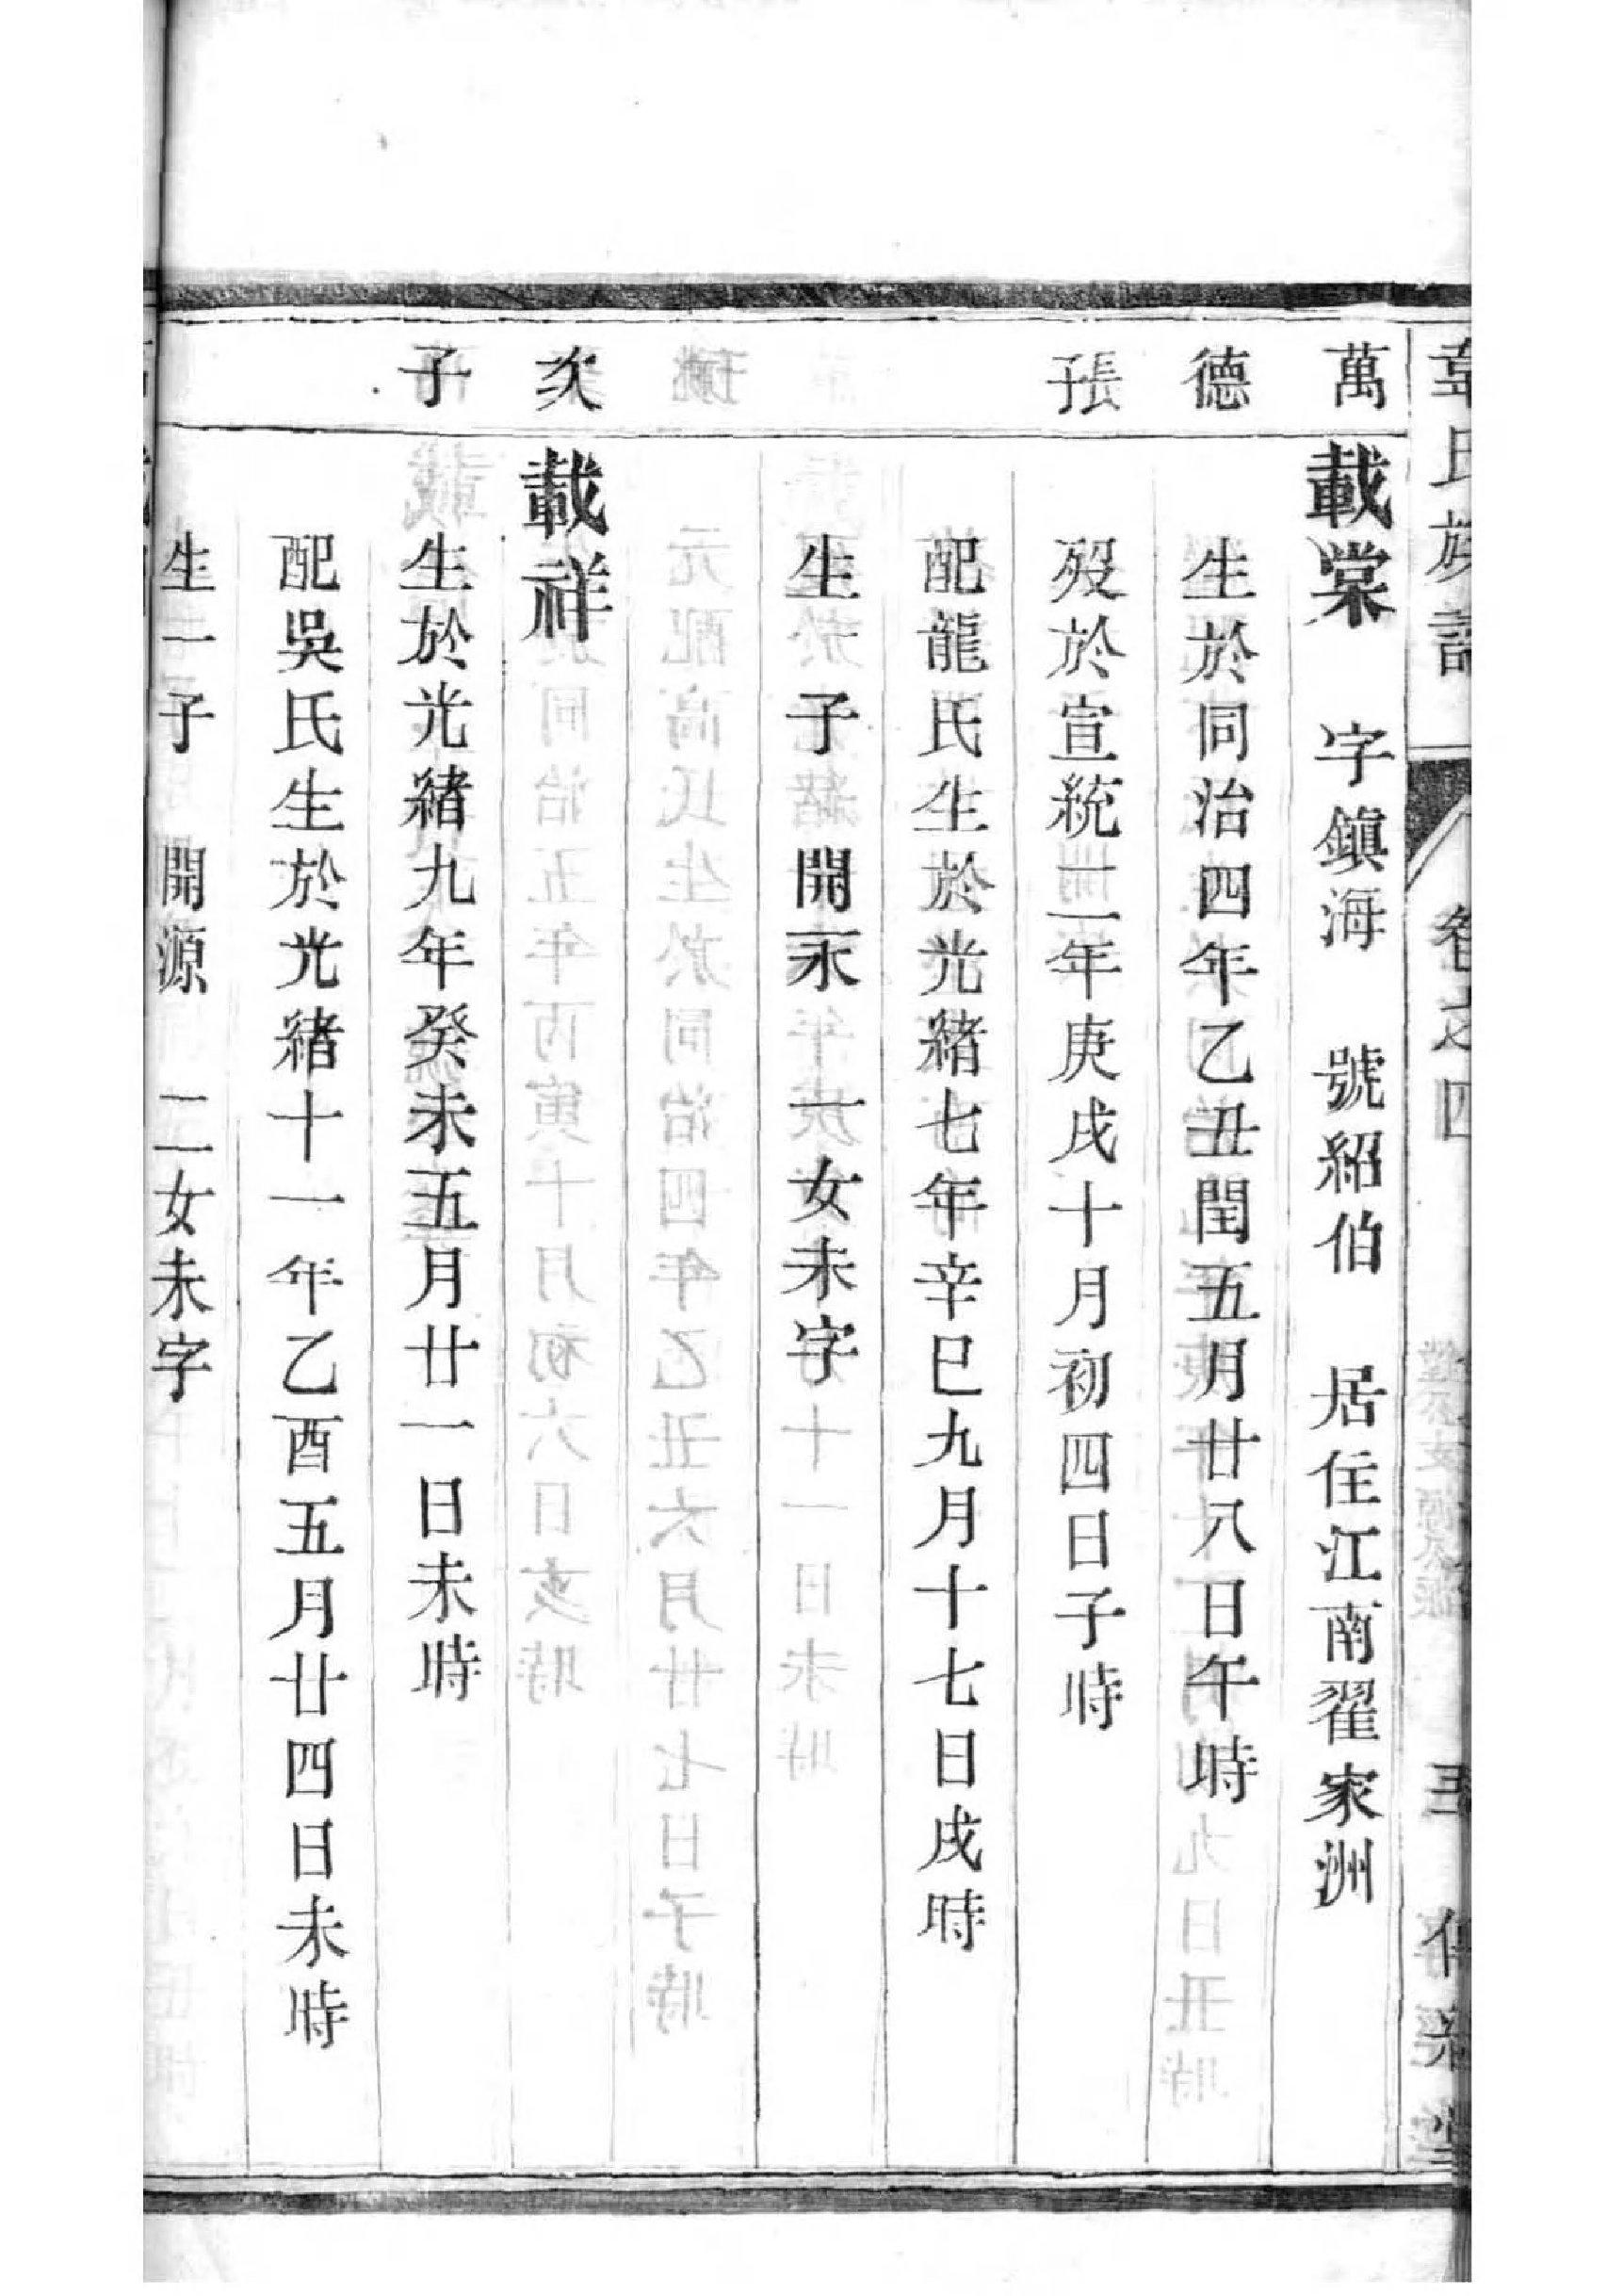 氏族譜 卷之四
萬 載棠 字鎮海 號紹伯 居住江南翟家洲
德 生於同治四年乙丑閏五月廿八日午時
長子 歿於宣統二年庚戌十月初四日子時
配龍氏生於光緒七年辛巳九月十七日戌時
生一子 開永 一女未字
次 載祥
子 生於光緒九年癸未五月廿一日未時
配吳氏生於光緒十一年乙酉五月廿四日未時
生一子 開源 二女未字